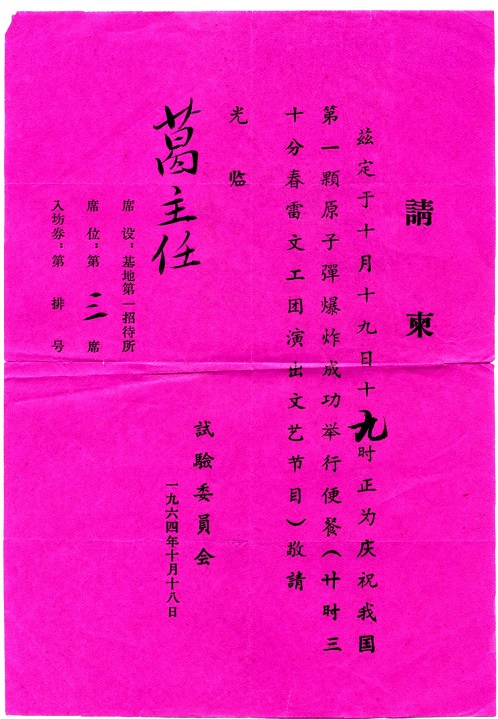 請柬
茲定于十月十九日十九时正为庆祝我国
第一顆原子彈爆炸成功举行便餐(廿时三
十分春雷文工团演出文艺节目)敬請
光临
葛主任
試驗委員会
一九六四年十月十八日
席设:基地第一招待所
席位:第三席
入坊券:第 排 号